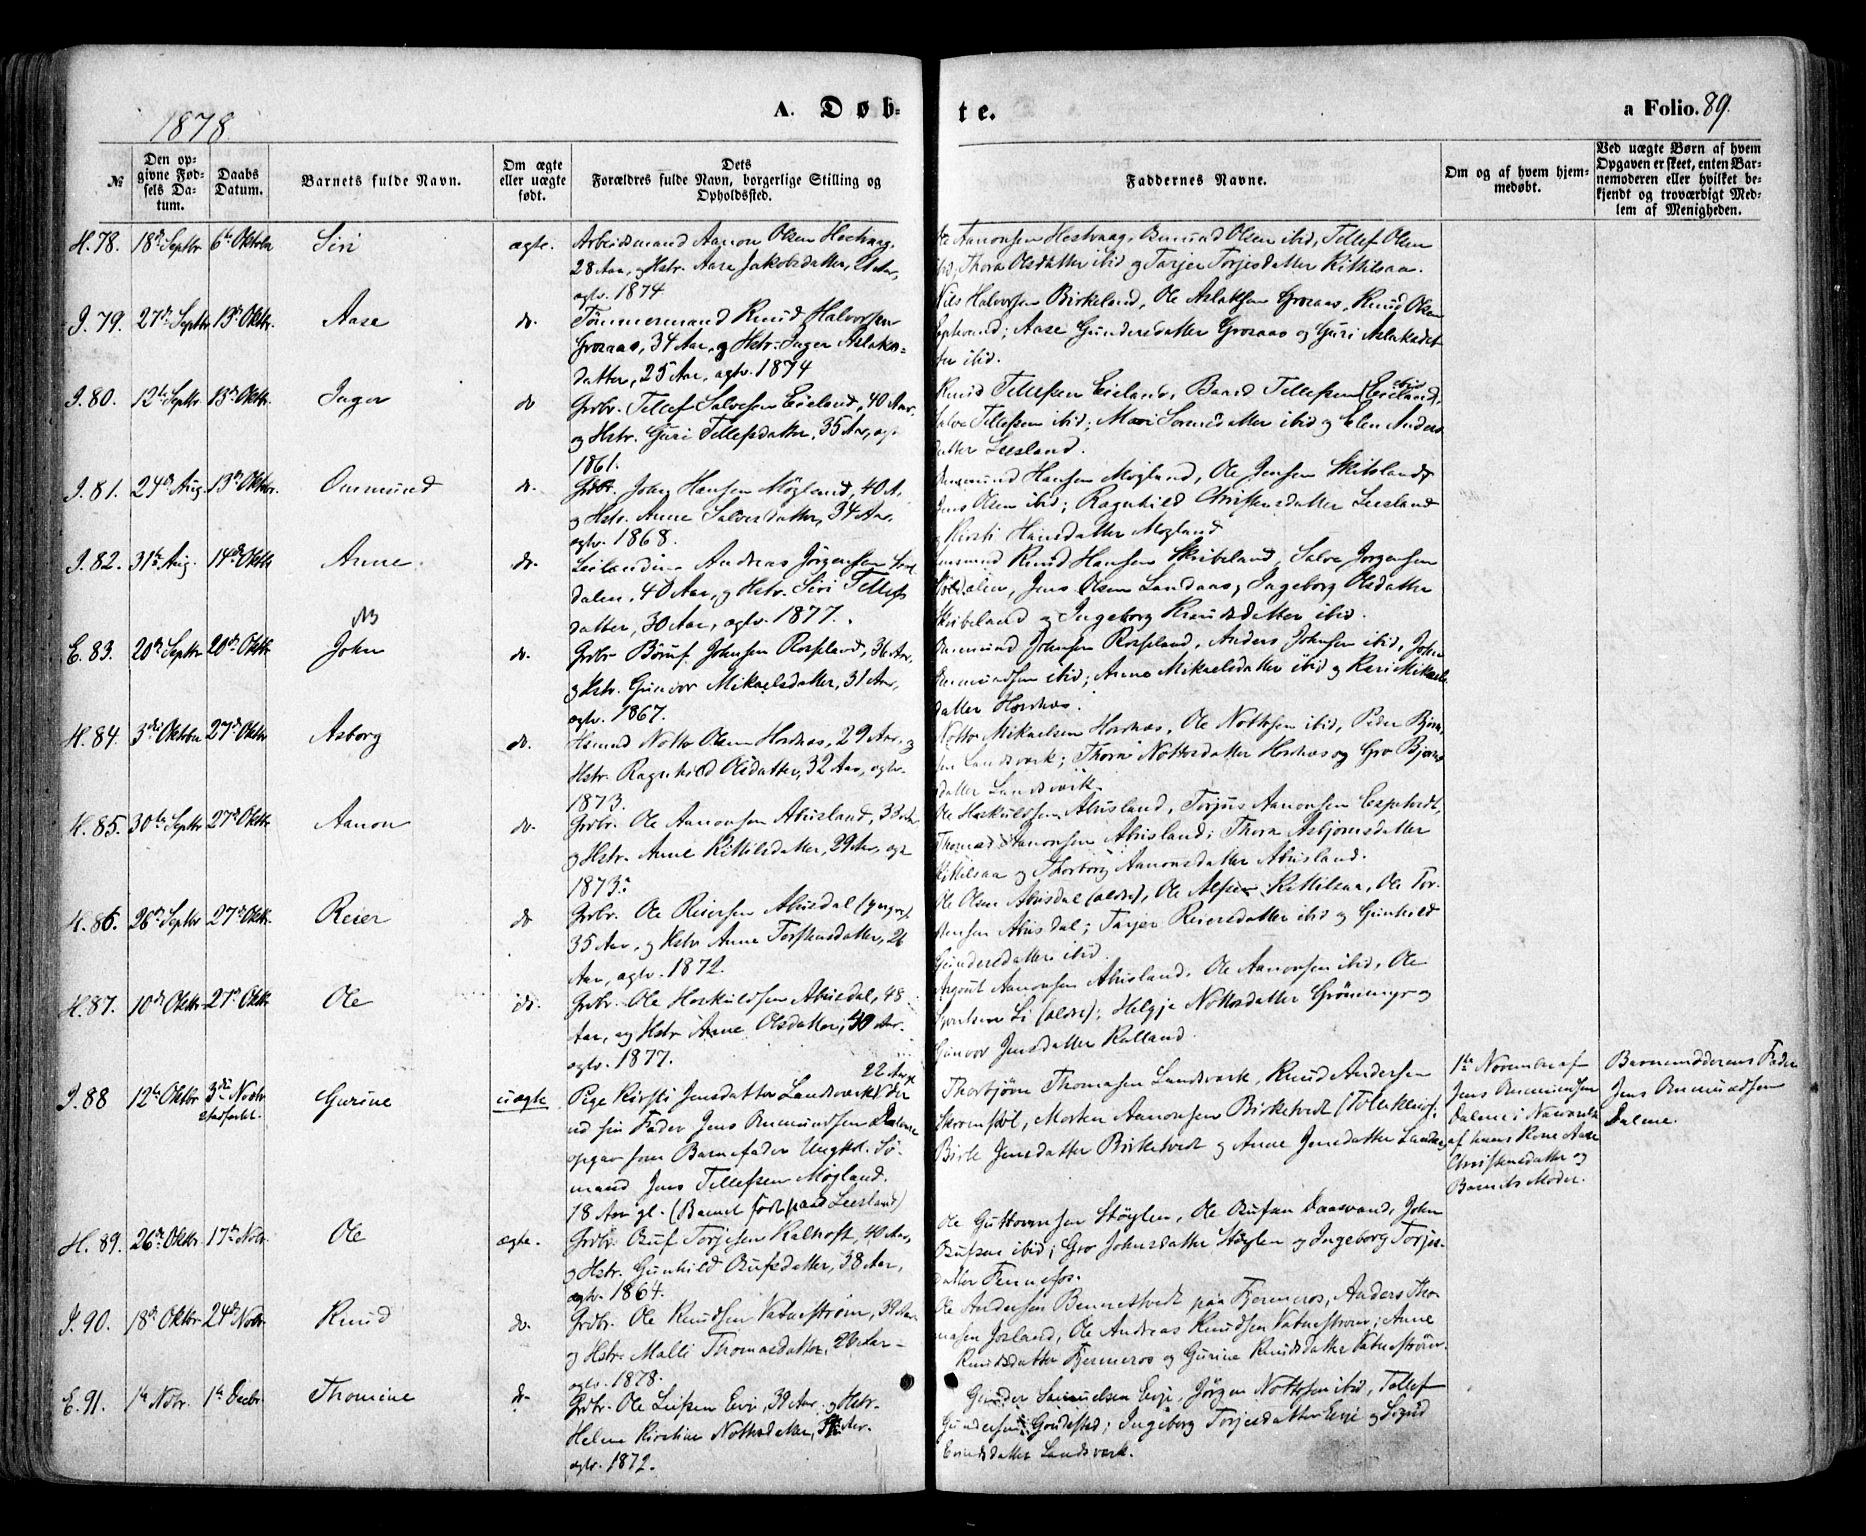 1878
A. Døb-
te.
a Folio. 89.
№
Den op-
givne Fød-
sels Da-
tum.
Daabs
Datum.
Barnets fulde Navn.
Om ægte
eller uægte
født.
Dets
Forældres fulde Navn, borgerlige Stilling og
Opholdssted.
Faddernes Navne.
Om og af hvem hjem-
medøbt.
Ved uægte Børn af hvem
Opgaven er skeet, enten Bar-
nemoderen eller hvilket be-
kjendt og troværdigt Med-
lem af Menigheden.
H. 78. 18de Septbr 6te Oktober Siri ægte. Arbeidsmand Aanon Olsen Hestvaag,
28 Aar, og Hstr. Aase Jakobsdatter, 21 Aar,
agtv. 1874
Ole Aanonsen Hestvaag, Omund Olsen ibid, Tellef Olsen
ibid, Thora Olsdatter ibid og Tarjer Torjesdatter Kittilsaa.
I. 79. 27de Septbr 13de Oktbr. Aase do. Tømmermand Knud Halvorsen
Grosaas, 34 Aar, og Hstr. Inger Aslaks-
datter, 25 Aar, agtv. 1874
Nils Halvorsen Birkeland, Ole Aslaksen Grosaas, Knud Olsen
Aase Gundersdatter Grosaas og Guri Aslaksdat
ter ibid.
I. 80. 12te Septbr 13de Oktbr. Inger do Grbr. Tellef Salvesen Eieland, 40 Aar,
og Hstr. Guri Tellefsdatter, 35 Aar, agt
1861.
Knud Tellefsen Eieland, Baard Tellefsen ibid (Eieland),
Salve Tellefsen ibid; Mari Sormesdatter ibid og Elen Anders
datter Leesland.
I. 81. 24de Aug. 13de Oktbr. Onmund do. Grbr. John Hansen Møgland, 40 A.
og Hstr. Anne Salvesdatter, 34 Aar,
agtv. 1868.
Hansen Møgland, Ole Jensen Skibsland,
Jens Olsen ibid; Ragnhild Christensdatter Leesland
og Kirsti Hansdatter Møgland
I. 82. 31te Aug. 14de Oktbr Anne. do. Leilending Andreas Jørgensen
dalen, 40 Aar, og Hstr. Siri Tellefs
datter, 30 Aar, agtv. 1877.
Knud Hansen Skibeland, Salve Jørgensen
Jens Olsen Landaas, Ingeborg Olsdatter
Skibeland og Ingeborg Knudsdatter ibid.
NB
E. 83. 20de Septbr 20de Oktbr John do. Grbr Børuf Johnsen Rosseland, 36 Aar,
og Hstr. Gunvor Mikaelsdatter, 31 Aar,
agtv. 1867.
Johnsen Rosseland, Anders Johnsen ibid, John
ibid; Anne Mikaelsdatter ibid og Kari Mikaels
datter Hornæs.
H. 84. 3die Oktober 27de Oktbr Asborg do. Husmd Notto Olsen Hornæs, 29 Aar, og
Hstr. Ragnhild Olsdatter, 32 Aar, agtv.
1873.
Notto Mikaelsen Hornæs, Ole Nottosen ibid, Peder Bjørn
sen Landsverk; Thora Nottosdatter Hornæs og Gro Bjørns
datter Landsverk.
H. 85. 30te Septbr 27de Oktbr Aanon do. Grbr. Ole Aanonsen Abusland, 33 Aar
og Hstr. Anne Kittilsdatter, 29 Aar, agt
1873.
Ole Haskuldsen Abusland, Torjus Aanonsen
Thomas Aanonsen Abusland; Thora Asbjørnsdatter
Kittilsaa og Thorborg Aanonsdatter Abusland.
H. 86. 26de Septbr 27de Oktbr Reier do Grbr. Ole Reiersen Abusdal (yngre),
35 Aar, og Hstr Anne Torstensdatter, 26
Aar, agtv. 1872.
Ole Olsen Abusdal (ældre), Ole Kittilsaa, Ole Tor-
stensen Abusdal; Tarjer Reiersdatter ibid og Gunhild
Gundersdatter ibid.
H. 87. 10de Oktbr 27de Oktbr Ole do. Grbr. Ole Haskuldsen Abusdal, 48
Aar, og Hstr Anne Olsdatter, 30 Aar.
agtv. 1877.
Aanonsen Abusland, Ole Aanonsen ibid, Ole
Li (ældre); Helgje Nottosdatter Grønmyr og
Gunvor Jensdatter Kalland.
I. 88 12te Oktbr 3die Novbr
stadfæstet.
Gurine uægte Pige Kirsti Jensdatter Landsverk, 22 Aar, der
ved sin Fader Jens Onmundsen Dalene
opgav som Barnefader Ungkl. Sø-
mand Jens Tellefsen Møgland.
18 Aar gl. (Barnet født paa Leesland)
Thorbjørn Thomasen Landsverk, Knud Andersen
Morten Aanonsen Birketvedt (Toluklein);
Birte Jensdatter Birketvedt og Anne Jensdatter Landsv
1te November af
Jens Onmundsen
Dalene i
af hans Kone Aase
Christensdatter og
Barnets Moder.
Barnemoderens Fader
Jens Onmundsen
Dalene.
H. 89. 26de Oktbr 17de Novbr. Ole ægte. Grbr. Bruf Torjesen Kalhoft, 40 Aar,
og Hstr. Gunhild Brufsdatter, 38 Aar,
agtv. 1864.
Ole Guttormsen Støylen, Ole Brufsen Daasvand, John
Brufsen ibid; Gro Johnsdatter Støylen og Ingeborg Torjes-
datter Fennefos.
I. 90. 18de Oktbr 24de Novbr Knud do. Grbr. Ole Knudsen Vatnestrøm, 39 Aar
og Hstr. Malli Thomasdatter, 26 Aar-
agtv. 1878.
Ole Andersen Bennestvedt paa Fjermeros, Anders Tho
masen Josland, Ole Andreas Knudsen Vatnestrøm; Anne
Knudsdatter Fjermeros og Gurine Knudsdatter Vatnestrøm.
E. 91. 1te Novbr. 1te Decbr. Thomine do. Grbr. Ole Leifsen Evje, 39 Aar, og Hstr.
Helene Kirstine Nottosdatter, Aar.
agtv. 1872.
Gunder Samuelsen Evje, Jørgen Nottosen ibid, Tellef
Gundersen; Ingeborg Torjesdatter Evje og Sigrid
Evindsdatter Landsverk.